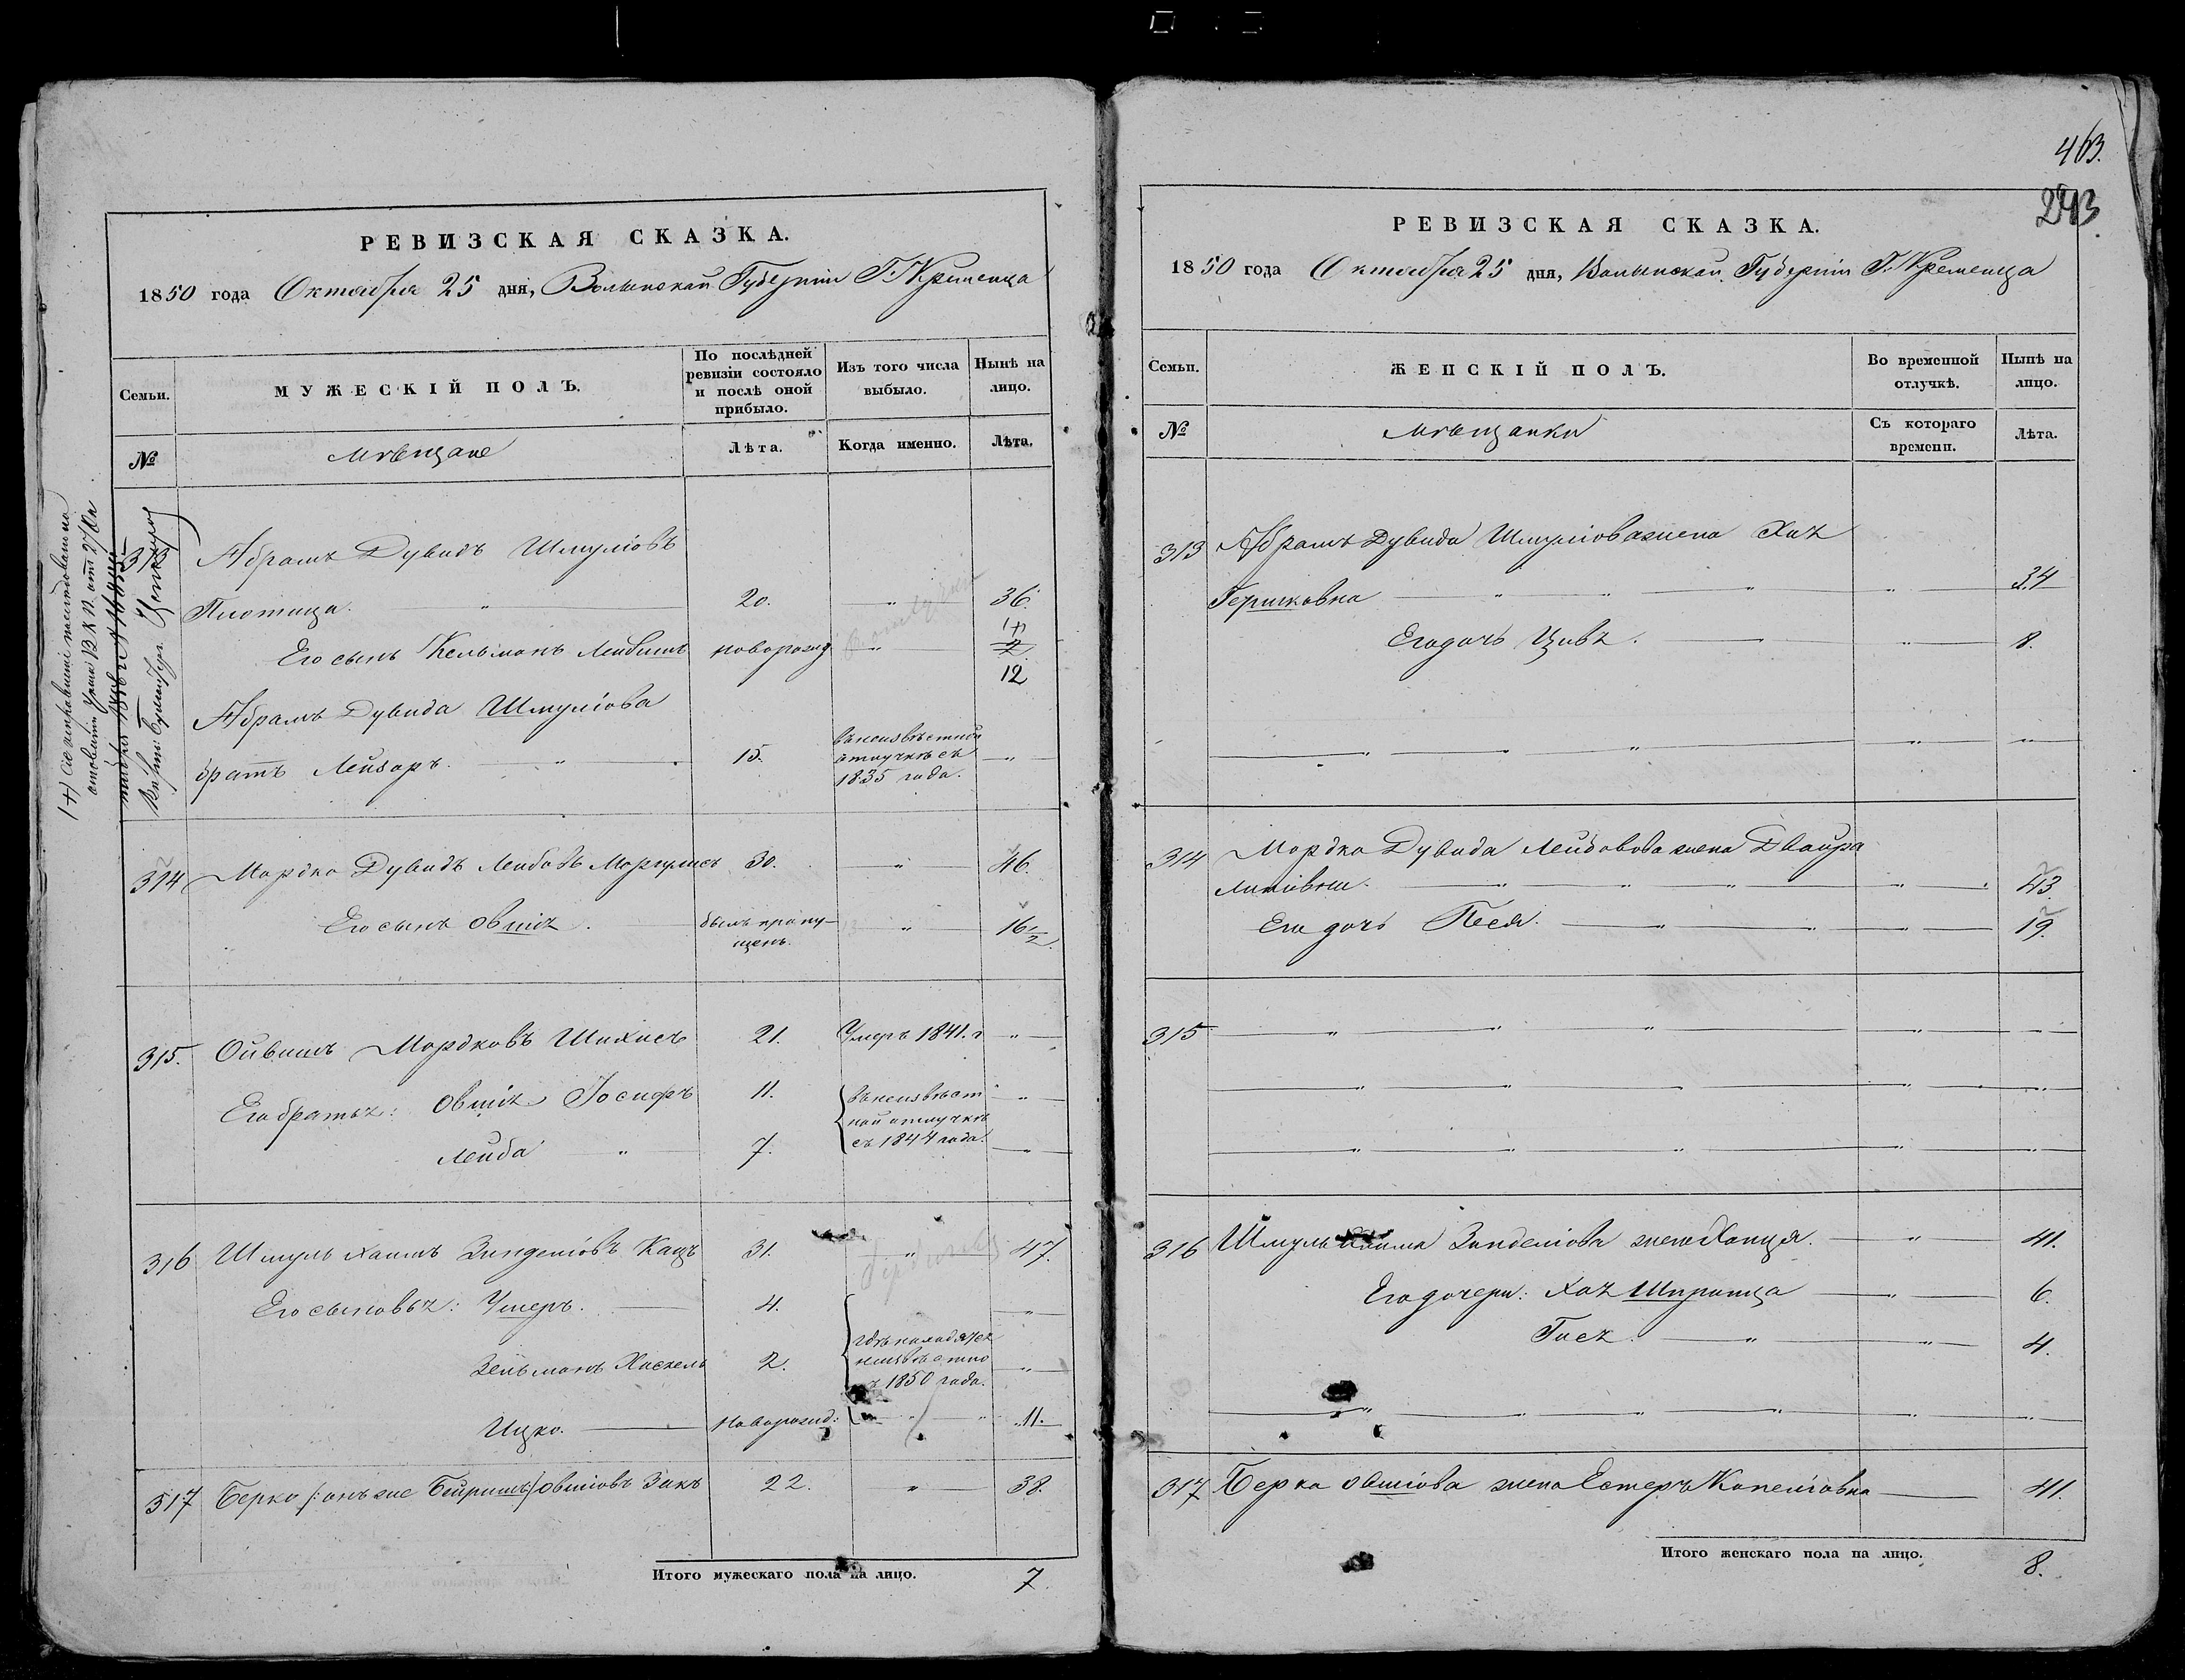 РЕВИЗСКАЯ СКАЗКА.
1850 года Октября 25 дня, Волынской Губерніи Г. Кременца
Семьи.
МУЖЕСКІЙ ПОЛЪ.
По послѣдней ревизіи состояло и послѣ оной прибыло.
Изъ того числа выбыло.
Нынѣ на лицо.
№
Мѣщане
Лѣта.
Когда именно.
Лѣта.
313 Абрамъ Дувидъ Шмуліовъ
" 20. " 36.
Его сынъ Кельманъ Лейбишъ новорожд " 12
Абрамъ Дувида Шмуліова
братъ Лейзоръ. " 15. въ неизвѣстной отлучкѣ съ 1835 года. "
314 Мордко Дувидъ Лейбовъ Моргулисъ 30. " 46.
Его сынъ Овшія. былъ пропущенъ. " 16 1/2.
315. Ойвишъ Мордковъ Шихисъ 21. Умеръ 1841. г "
Его братья: Овшія Іосифъ 11. въ неизвѣстной отлучкѣ съ 1844 года. "
Лейба " 7. "
316 Шмуль Хаимъ Зинделіовъ Кацъ 31. " 47.
Его сыновья: Ушеръ. 4. "
Зельманъ Хаскель 2. гдѣ находятся неизвѣстно съ 1850 года. "
Ицко. новорожд: " " 11.
317 Берко /:онъ же Бейришъ:/ Овшіовъ Закъ 22. " 38.
Итого мужескаго пола на лицо. 7.
463.
293
РЕВИЗСКАЯ СКАЗКА.
1850 года Октября 25 дня, Волынской Губерніи Г. Кременца
Семьи.
ЖЕНСКІЙ ПОЛЪ.
Во временной отлучкѣ.
Нынѣ на лицо.
№
Мѣщанки
Съ котораго времени.
Лѣта.
313 Абрамъ Дувида Шмуліова жена Хая
Гершковна " " " " 34
Его дочь Цивя. " 8.
" " " " "
314 Мордко Дувида Лейбовова жена Двойра
" " " " 43
Его дочь Песя. " " " 19.
315 " " " " "
" " " " "
" " " " "
316 Шмуль Хаима Зинделіова жена Ханця. " 41.
Его дочери: Хая Шпринца " 6.
Гися " " 4.
" " " " " "
317 Берка Овшіова жена Естеръ Копеліовна 41.
Итого женскаго пола на лицо. 8.